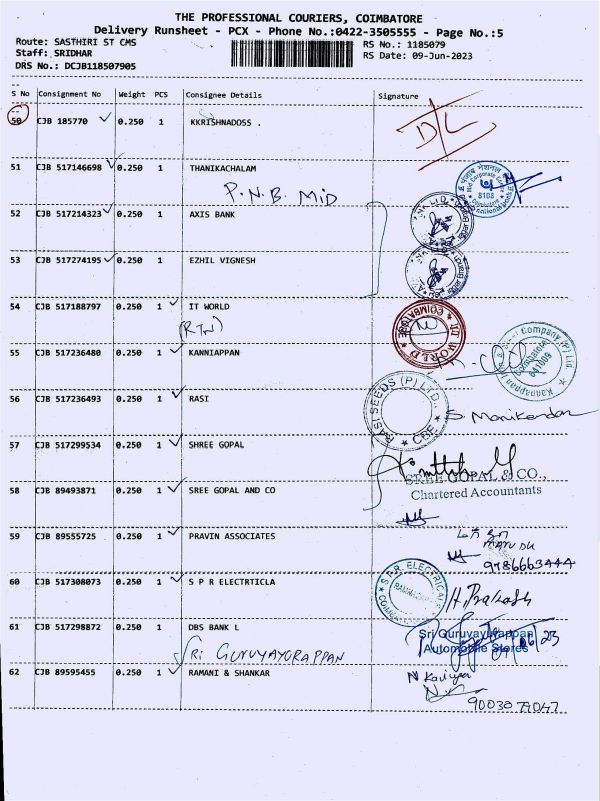 THE PROFESSIONAL COURIERS, COIMBATORE
Delivery Runsheet - PCX - Phone No.:0422-3505555 - Page No.:5
Route: SASTHIRI ST CMS RS No.: 1185079
Staff: SRIDHAR RS Date: 09-Jun-2023
DRS No.: DCJB118507905
S No Consignment No Weight PCS Consignee Details Signature
50 CJB 185770 ✓ 0.250 1 KKRISHNADOSS . D/L
51 CJB 517146698 ✓ 0.250 1 THANIKACHALAM
P.N.B. MID
8108
52 CJB 517214323 ✓ 0.250 1 AXIS BANK
53 CJB 517274195 ✓ 0.250 1 EZHIL VIGNESH
54 CJB 517188797 0.250 1 ✓ IT WORLD
(RTN)
IT WORLD * COIMBATORE
55 CJB 517236480 0.250 1 ✓ KANNIAPPAN
Company (P) Ltd. Coimbatore 641009
56 CJB 517236493 0.250 1 ✓ RASI
RASI SEEDS (P) LTD., * CBE *
S. Manikandan
57 CJB 517299534 0.250 1 ✓ SHREE GOPAL
58 CJB 89493871 0.250 1 ✓ SREE GOPAL AND CO
SREE GOPAL & CO.,
Chartered Accountants
59 CJB 89555725 0.250 1 ✓ PRAVIN ASSOCIATES
9786663444
60 CJB 517308073 0.250 1 ✓ S P R ELECTRTICLA
S.P.R. ELECTRICALS
H. Prakash
61 CJB 517298872 0.250 1 DBS BANK L
SRI GURUVAYURAPPAN
Sri Guruvayurappan
Automobile Stores
62 CJB 89595455 0.250 1 ✓ RAMANI & SHANKAR